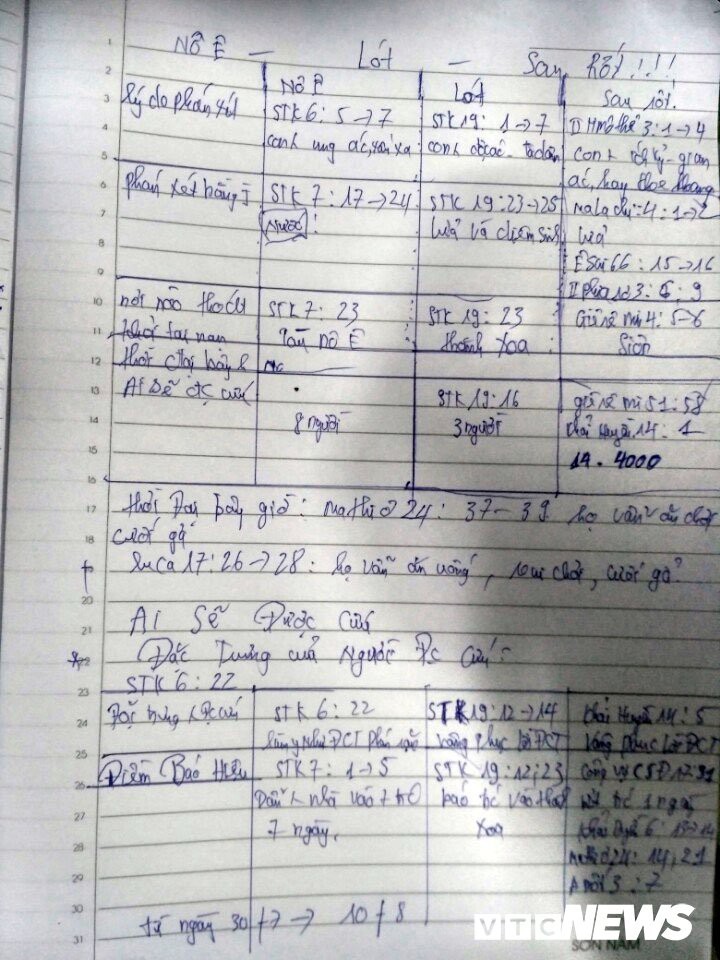 NÔ Ê - LÓT - Sau rốt!!!!
NÔ Ê LÓT Sau rốt.
lý do phán xét STK 6: 5→7 STK 19: 1→7 II Timôthê 3: 1→4
con ung ác, xấu xa con độc ác
ác, hay khoe khoang
phán xét bằng j STK 7: 17→24 STK 19: 23→25 malachi: 4: 1→2
Nước! lửa và diêm sinh lửa
Ê Sai 66: 15→16
3: 6; 9
nơi nào thoát STK 7: 23 STK 19: 23 Giê rê mi 4: 5-6
khỏi tai nạn Tàu NÔ Ê thành Xoa Siôn
thời đại bấy h
Ai sẽ đc cứu STK 19: 16 giê rê mi 51: 58
8 người 3 người khải huyền 14: 1
14.4000
thời đại bây giờ: mathiơ 24: 37-39 họ vẫn ăn chơi
cưới gả
luca 17: 26→28: họ vẫn ăn uống, vui chơi, cưới gả
AI SẼ Được Cứu
Đặc Trưng của Người Đc Cứu:
STK 6: 22
STK 6: 22 STK 19: 12→14 khải Huyền 14: 5
làm y như ĐCT phán vâng phục lời ĐCT vâng phục lời ĐCT
Điềm Báo Hiệu STK 7: 1→5 STK 19: 12; 23 công vụ CSĐ
nhà vào báo vào thành 1 ngày
7 ngày. Xoa khải huyền 6:
mathiơ 24: 14, 21
A mốt 3: 7
từ ngày 30/7 → 10/8
VTC NEWS
SƠN NAM
1
2
3
4
5
6
7
8
9
10
11
12
13
14
15
16
17
18
20
21
22
23
24
25
26
27
28
29
30
31